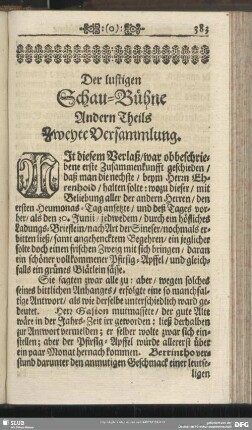 :(o):
383
Der lustigen
Schau-Bühne
Andern Theils
Zweyte Versammlung.
MIt diesem Verlaß/war obbeschrie-
bene erste Zusammenkunfft geschieden/
daß man die nechste/ beym Herrn Eh-
renhold/ halten solte: wozu dieser/ mit
Beliebung aller der andern Herren/ den
ersten Heumonas-Tag ansetzte/ und deß Tages vor-
her/ als den 30. Junii/ jedwedem/ durch ein höfliches
Ladungs-Brieflein/nach Art der Sineser/nochmals er-
bitten ließ/ samt angehencktem Begehren/ ein jeglicher
solte doch einen frischen Zweig mit sich bringen/ daran
ein schöner vollkommener Pfirsig-Apffel/ und gleich-
falls ein grünes Blätlein säße.
Sie sagten zwar alle zu: aber/ wegen solches
seines bittlichen Anhanges/ erfolgte eine so manchfal-
tige Antwort/ als wie derselbe unterschiedlich ward ge-
deutet. Herr Gasion mutmassete/ der gute Alte
wäre in der Jahrs-Zeit irr geworden: ließ derhalben
zur Antwort vermelden; er selber wolte zwar sich ein-
stellen; aber der Pfirsig-Apffel würde allererst über
ein paar Monat hernach kommen. Berrintho ver-
stund darunter den anmutigen Geschmack einer leutse-
ligen